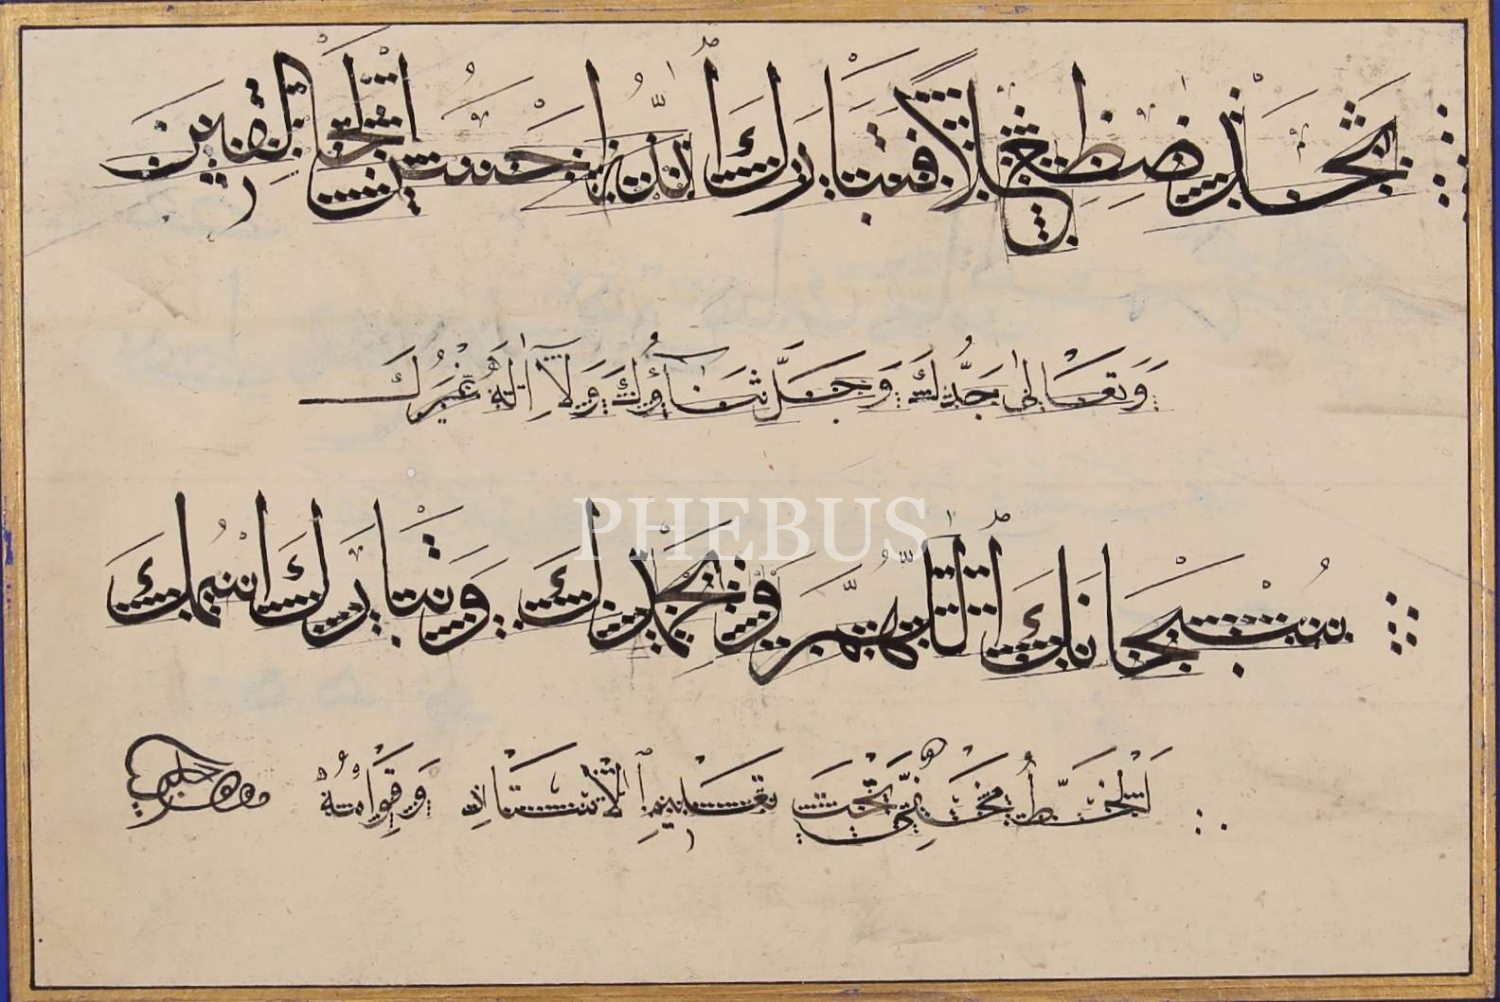 فتبارك الله احسن الخالقين
وتعالى جدك وجل ثناؤك ولا اله غيرك
PHEBUS
سبحانك اللهم وبحمدك وتبارك اسمك
الخط مخفي تعليم الاستاذ وقوامه